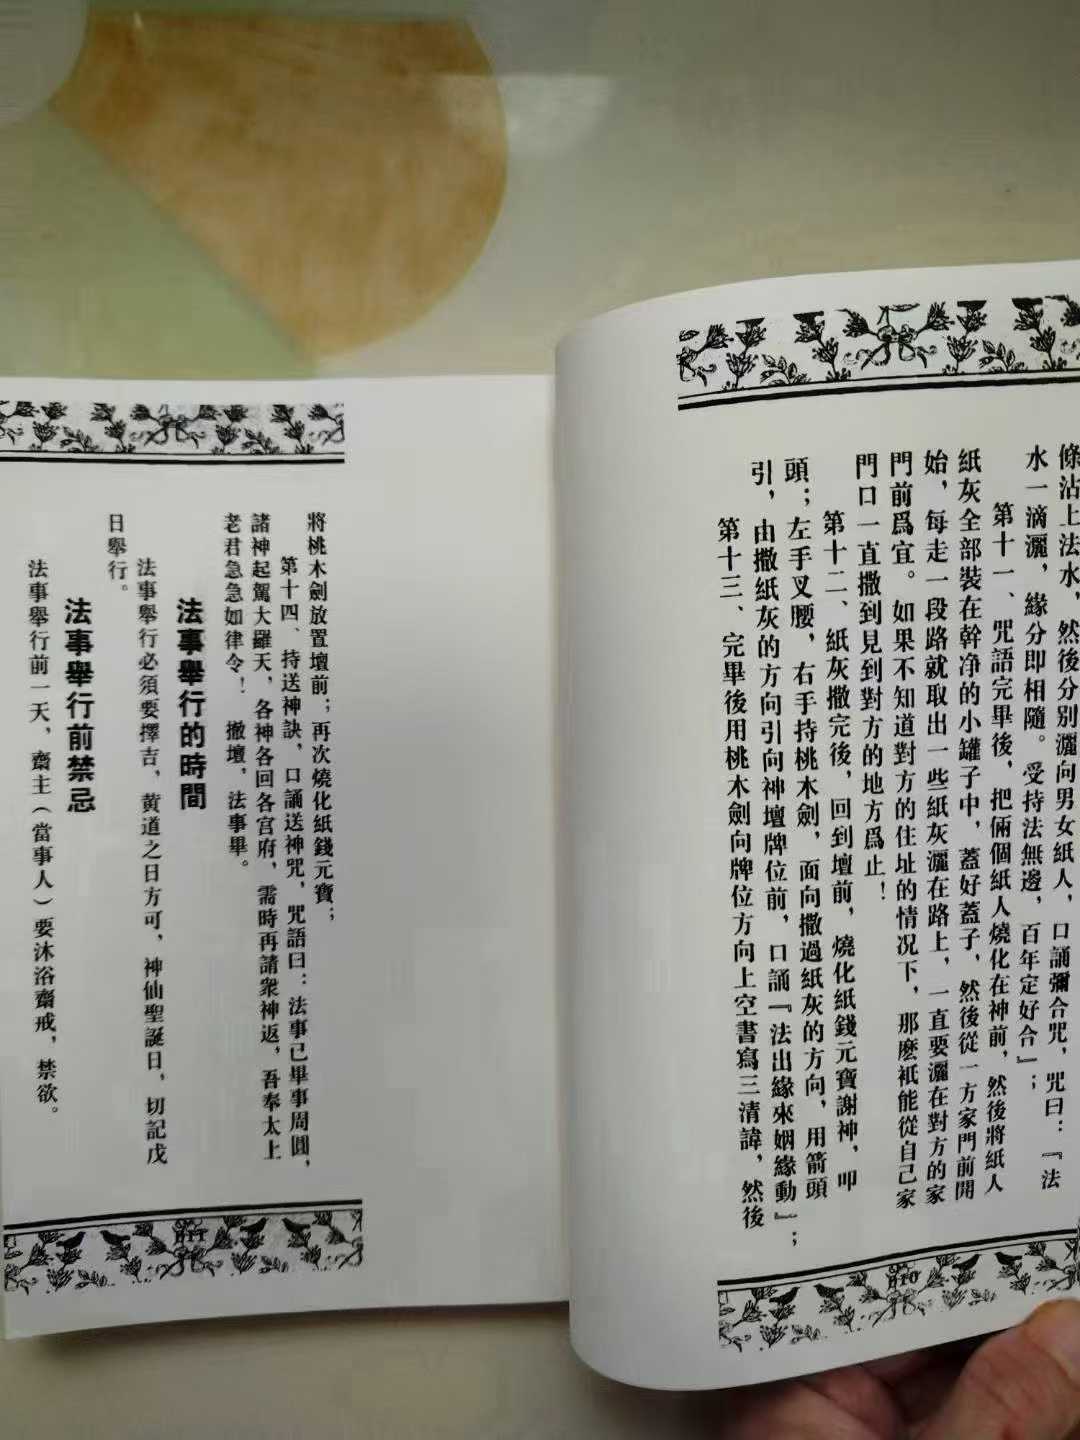 條沾上法水，然後分別灑向男女紙人，口誦彌合咒，咒曰：『法
水一滴灑，緣分即相隨。受持法無邊，百年定好合』；
第十一、咒語完畢後，把倆個紙人燒化在神前，然後將紙人
紙灰全部裝在幹净的小罐子中，蓋好蓋子，然後從一方家門前開
始，每走一段路就取出一些紙灰灑在路上，一直要灑在對方的家
門前爲宜。如果不知道對方的住址的情况下，那麽衹能從自己家
門口一直撒到見到對方的地方爲止！
第十二、紙灰撒完後，回到壇前，燒化紙錢元寶謝神，叩
頭；左手叉腰，右手持桃木劍，面向撒過紙灰的方向，用箭頭
引，由撒紙灰的方向引向神壇牌位前，口誦『法出緣來姻緣動』；
第十三、完畢後用桃木劍向牌位方向上空書寫三清諱，然後
010
將桃木劍放置壇前；再次燒化紙錢元寶；
第十四、持送神訣，口誦送神咒，咒語曰：法事已畢事周圓，
諸神起駕大羅天，各神各回各宫府，需時再請衆神返，吾奉太上
老君急急如律令！撤壇，法事畢。
法事舉行的時間
法事舉行必須要擇吉，黄道之日方可，神仙聖誕日，切記戊
日舉行。
法事舉行前禁忌
法事舉行前一天，齋主（當事人）要沐浴齋戒，禁欲。
011